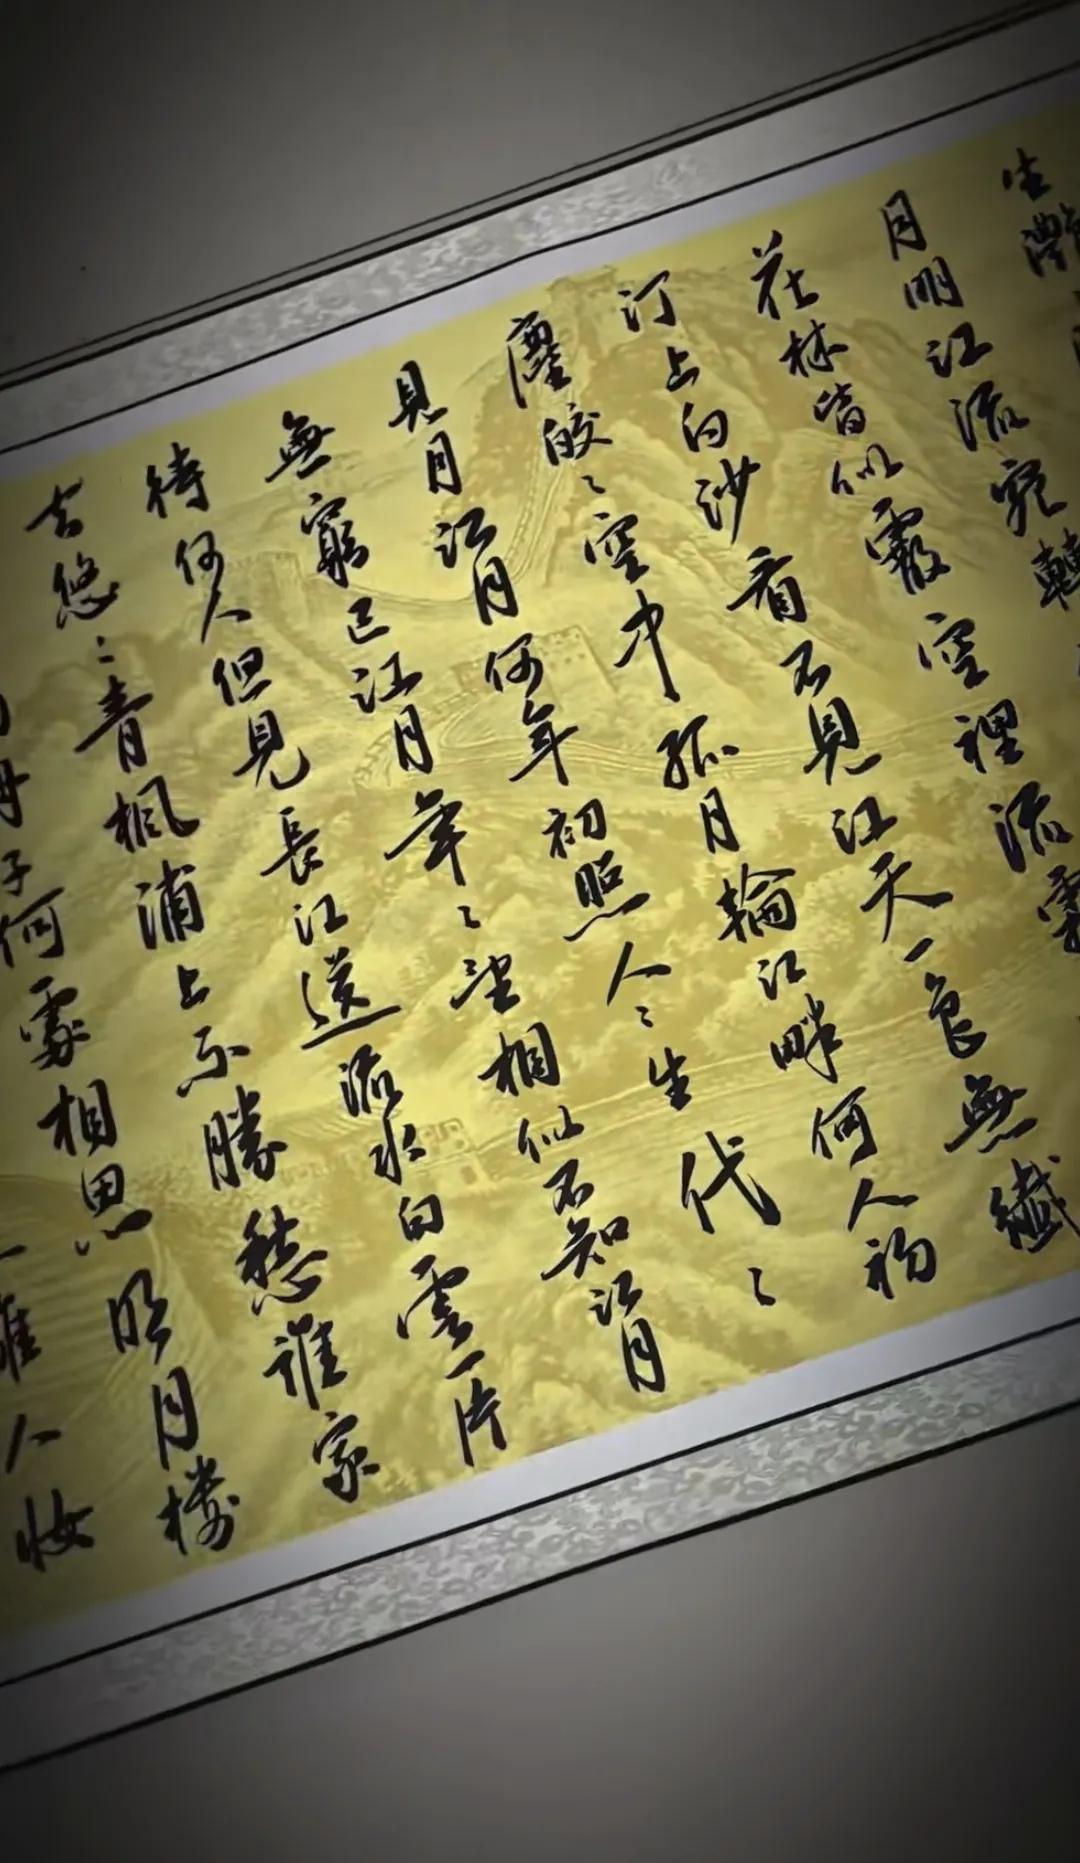 生灩
月明江流宛轉
花林皆似霰空裡流霜
汀上白沙看不見江天一色無纖
塵皎々空中孤月輪江畔何人初
見月江月何年初照人々生代々
無窮已江月年々望相似不知江月
待何人但見長江送流水白雲一片
去悠々青楓浦上不勝愁誰家
舟子何處相思明月樓
離人妝